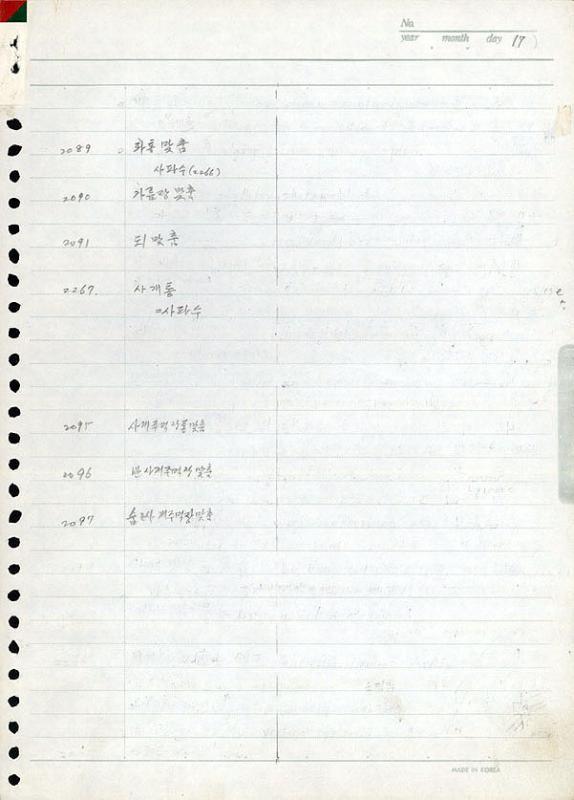 No
year month day 17
2089 화통맞춤
사파수(2266)
2090 가름장맞춤
2091 되맞춤
2267. 사개통
=사파수
2095 사개주먹장통맞춤
2096 반사개주먹장맞춤
2097 숨은사개주먹장맞춤
MADE IN KOREA